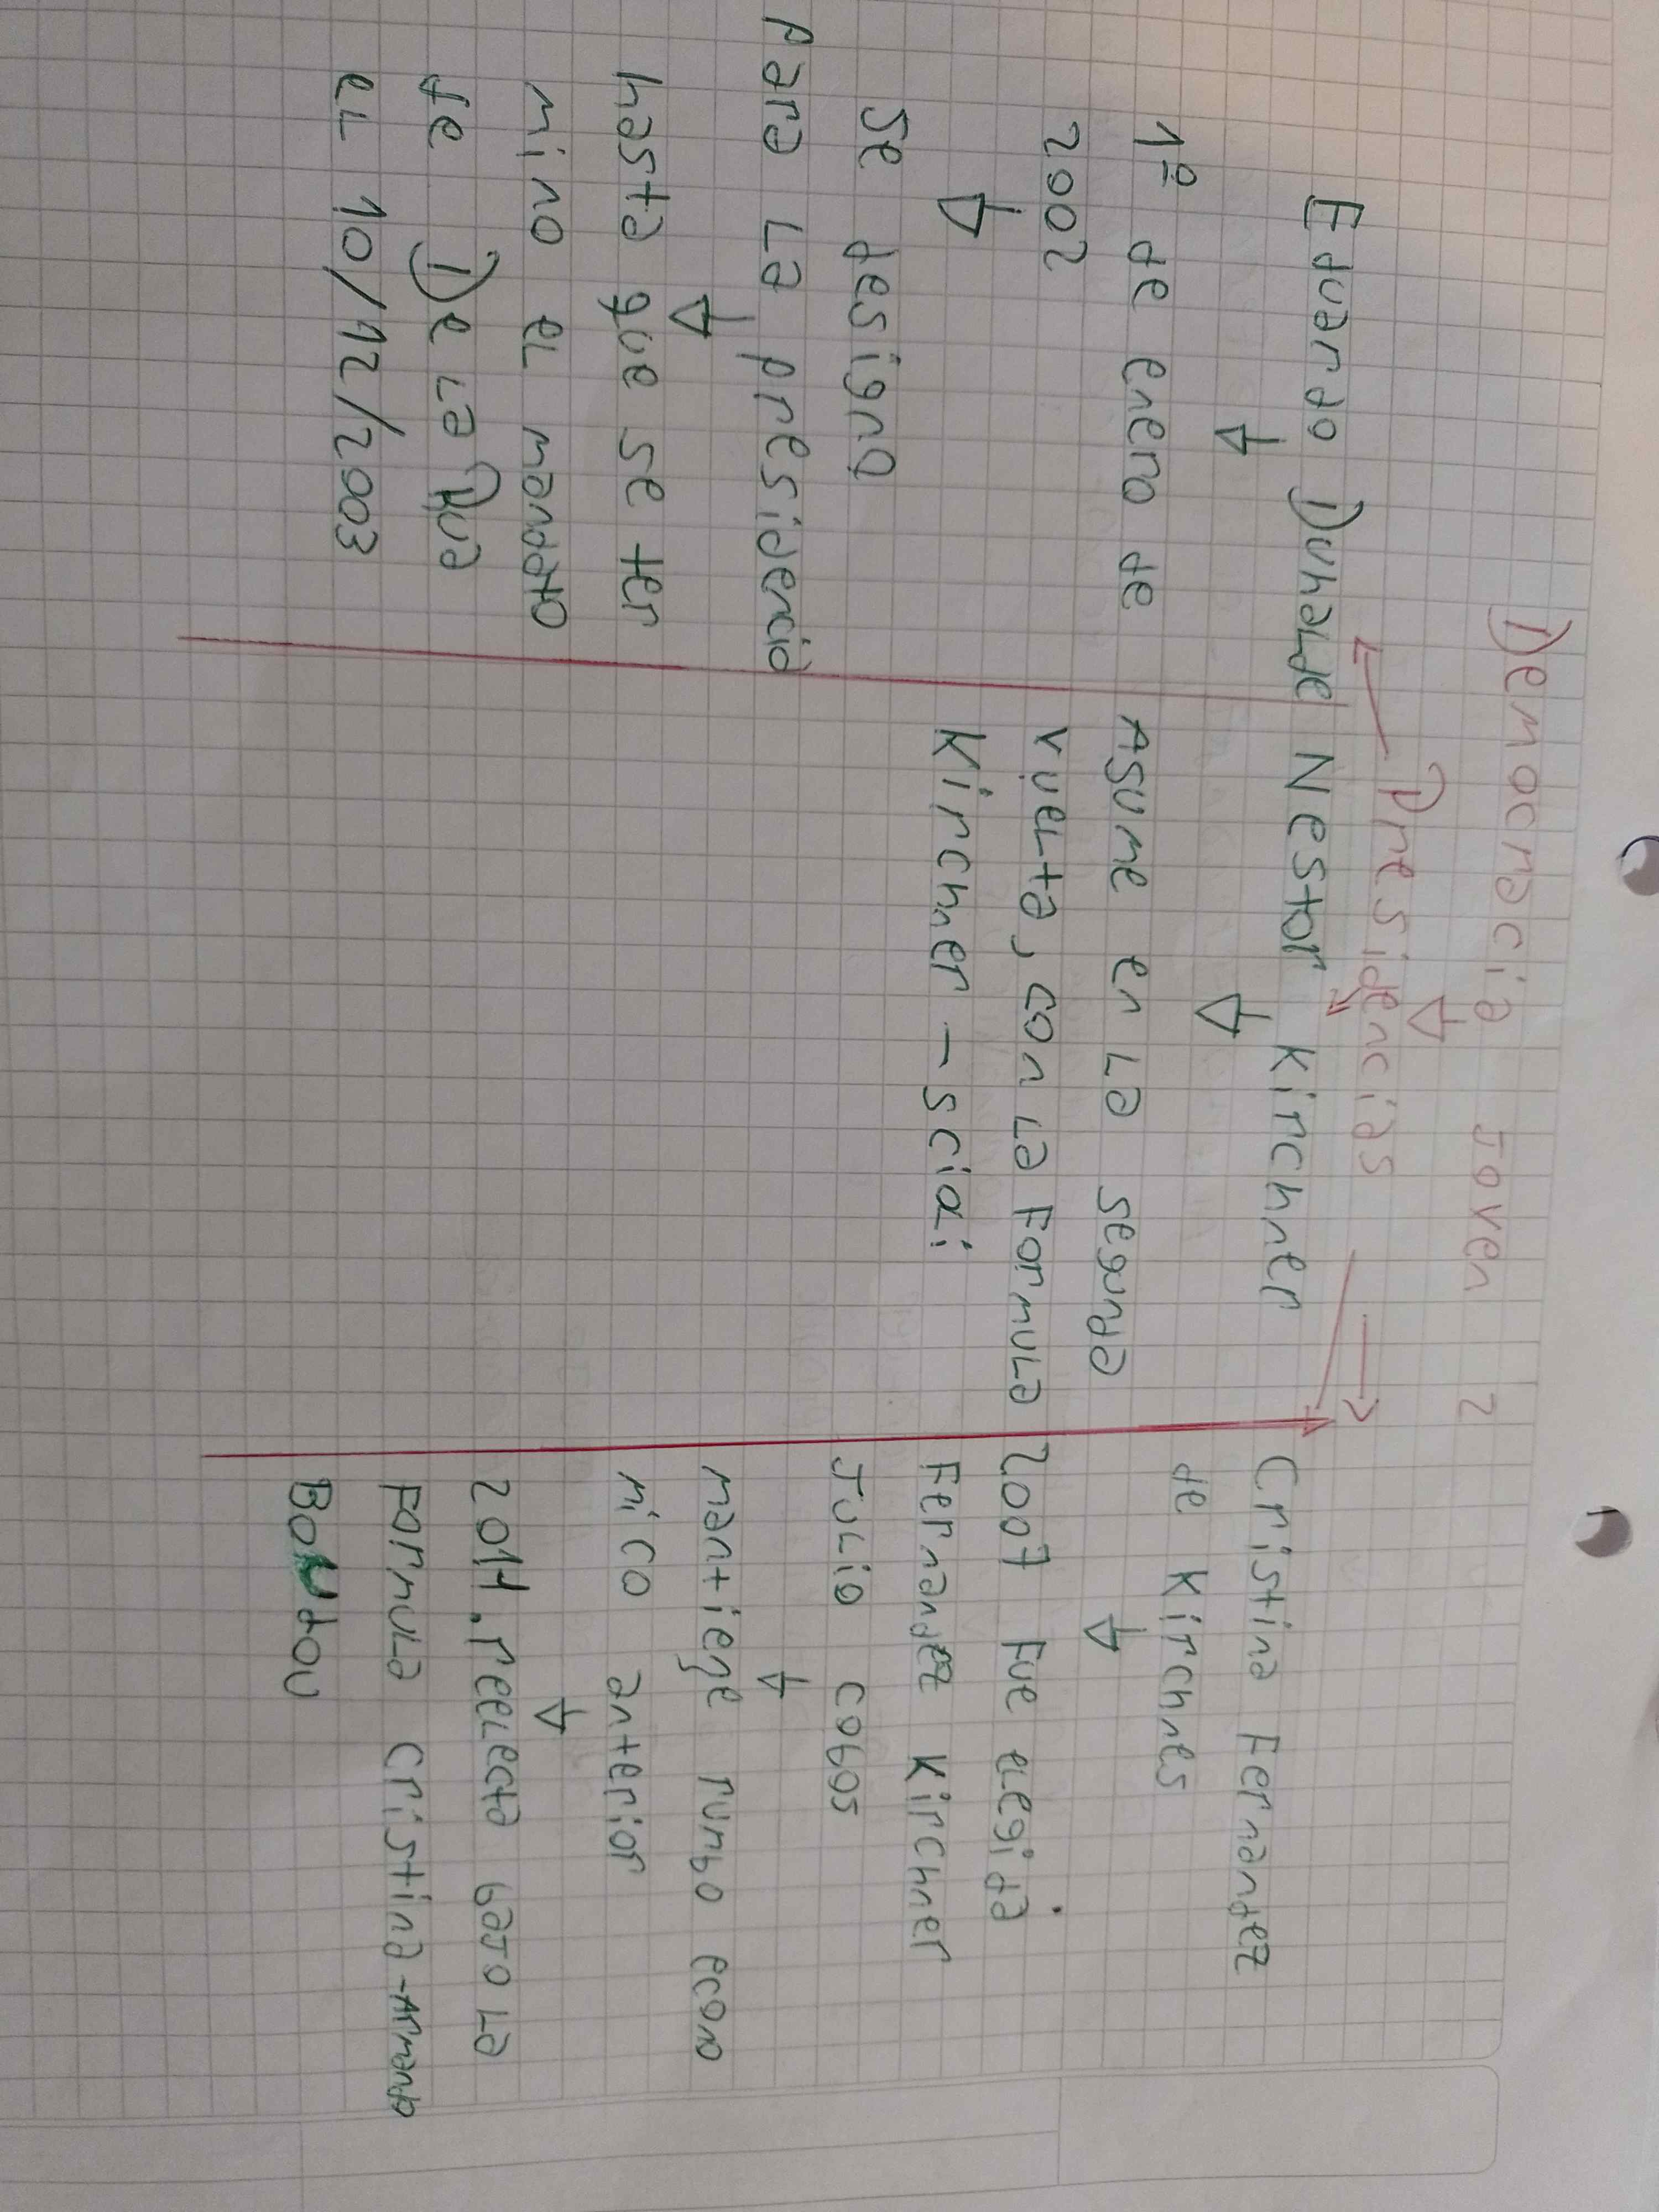 Democracia Joven 2
Presidencias
Eduardo Duhalde
1º de enero de
2002
Se designa
para la presidencia
hasta que se ter
mino el mandato
de De la Rua
el 10/12/2003
Nestor Kirchner
Asume en la segunda
vuelta, con la Formula
Kirchner - scioli
Cristina Fernandez
de Kirchnes
2007 Fue elegida
Fernandez Kirchner
Julio Cobos
mantiene rumbo econo
mico anterior
2011. reelecta bajo la
Formula Cristina - Armando
Boudou